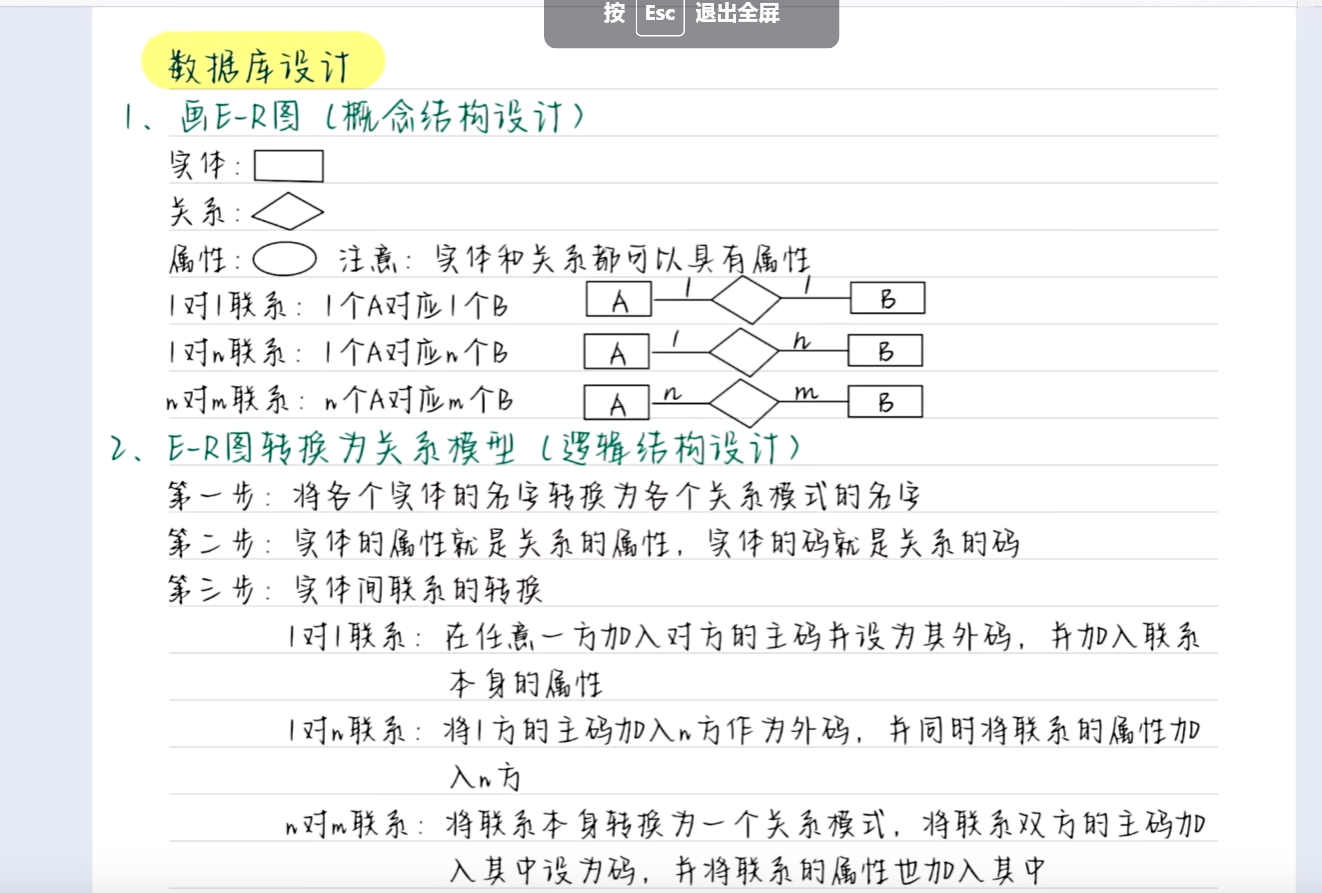 按 Esc 退出全屏
数据库设计
1、画E-R图(概念结构设计)
实体:
关系:
属性: 注意: 实体和关系都可以具有属性
1对1联系: 1个A对应1个B A 1 1 B
1对n联系: 1个A对应n个B A 1 n B
n对m联系: n个A对应m个B A n m B
2、E-R图转换为关系模型(逻辑结构设计)
第一步: 将各个实体的名字转换为各个关系模式的名字
第二步: 实体的属性就是关系的属性, 实体的码就是关系的码
第三步: 实体间联系的转换
1对1联系: 在任意一方加入对方的主码并设为其外码, 并加入联系
本身的属性
1对n联系: 将1方的主码加入n方作为外码, 并同时将联系的属性加
入n方
n对m联系: 将联系本身转换为一个关系模式, 将联系双方的主码加
入其中设为码, 并将联系的属性也加入其中